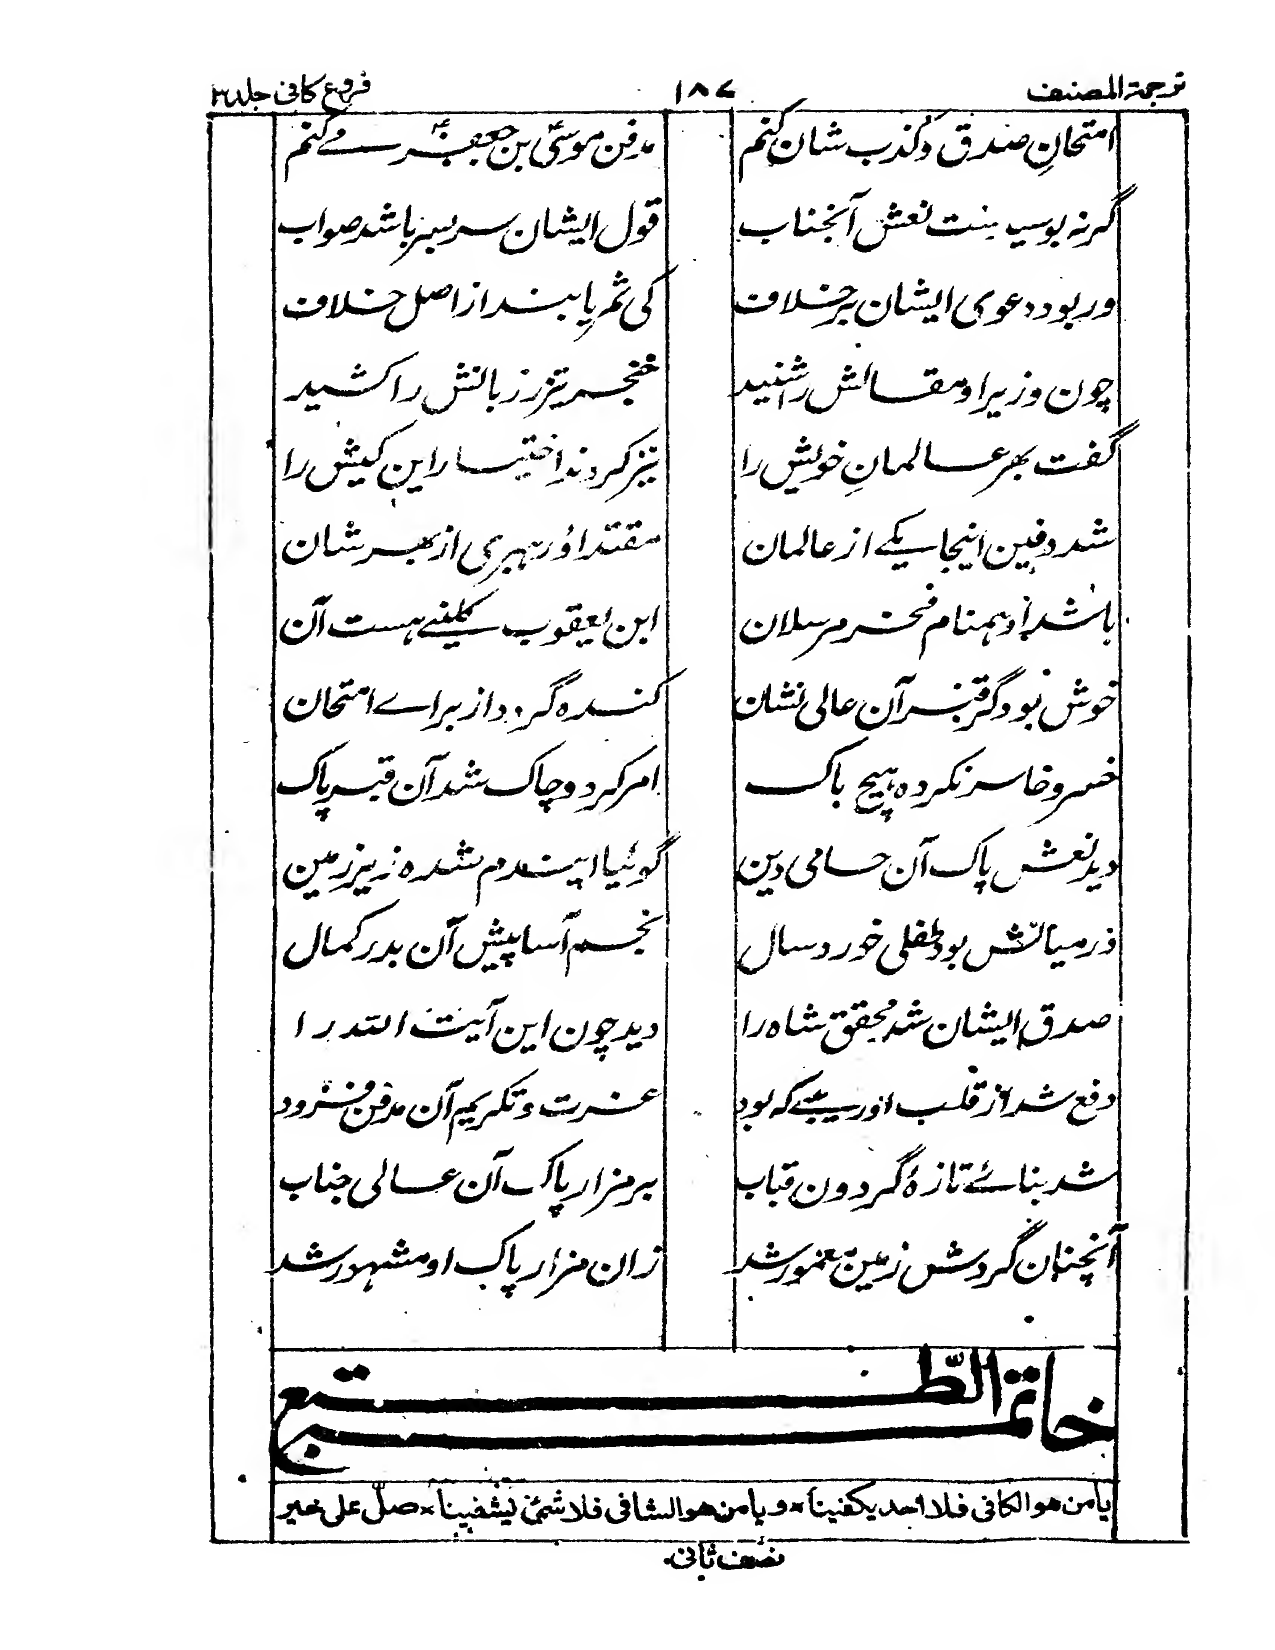 ترجمة المصنف ١٨٧ فروع کافی جلد٢
امتحانِ صدق و کذب شان کنم مدفن موسیٰؑ بن جعفرؑ مے کنم
گر نہ بوسیدہ است نعش آنجناب قول ایشان سربسر باشد صواب
ور بود دعوی ایشان بر خلاف کی ثمر یابند از اصل خلاف
چون وزیر او مقالش را شنید خنجر تیز زبانش را کشید
گفت بہر عالمانِ خویش را نیز کردند اختیار این کیش را
شد دفین اینجا یکے از عالمان مقتدا و رہبری از بہر شان
باشد او ہمنام فخر مرسلان ابن یعقوب کلینے ہست آن
خوش بود گر قبر آن عالی نشان کندہ گردد از براے امتحان
خسرو خاسر نکردہ ہیچ باک امر کرد و چاک شد آن قبر پاک
دید نعش پاک آن حامی دین گوئیا ایندم شدہ زیر زمین
در میانش بود طفلی خورد سال نجم آسا پیش آن بدر کمال
صدق ایشان شد محقق شاہ را دید چون این آیت اللہ را
دفع شد از قلب او ریبے کہ بود عزت و تکریم آن مدفن فزود
شد بنائے تازۂ گردون قباب بر مزار پاک آن عالی جناب
آنچنان گردش زمین معمور شد زان مزار پاک او مشہور شد
خاتمة الطّبع
یا من هو الکافی فلا احد یکفینا * و یا من هو الشافی فلا شیٔ یشفینا * صلّ علی خیر
نصف ثانی